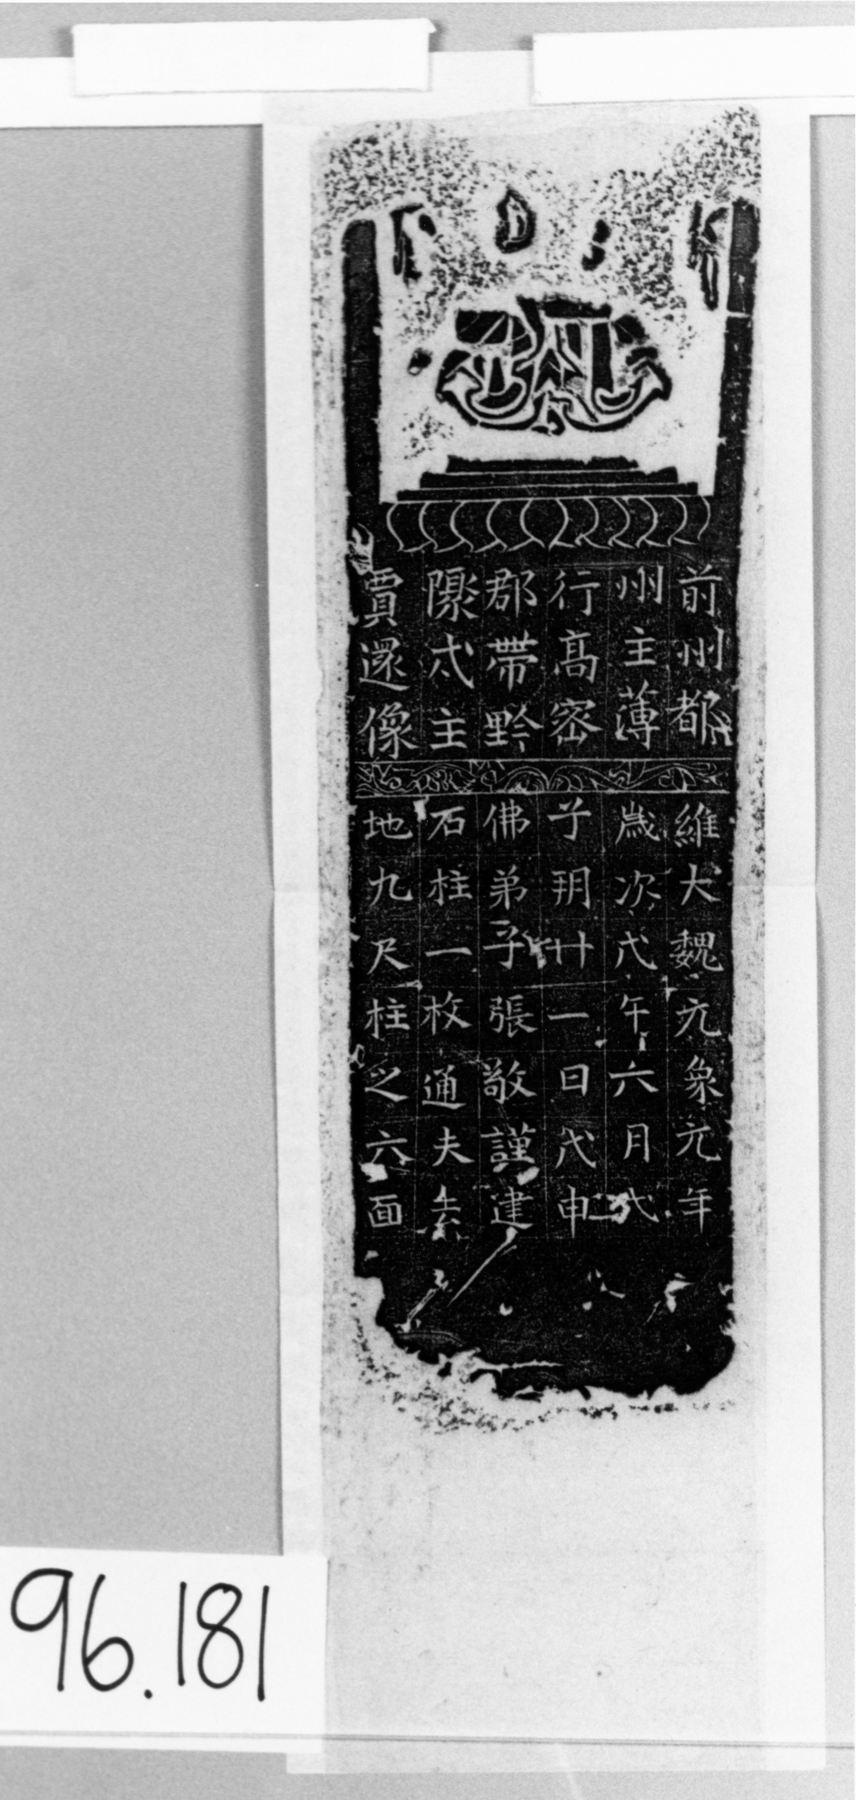 前州都
州主薄
行高密
郡帶黔
陬忒主
賈還像
維大魏元象元年
歲次戊午六月戊
子玥廿一日戊申
佛弟子張敬謹建
石柱一枚通夫素
地九尺柱之六面
96.181